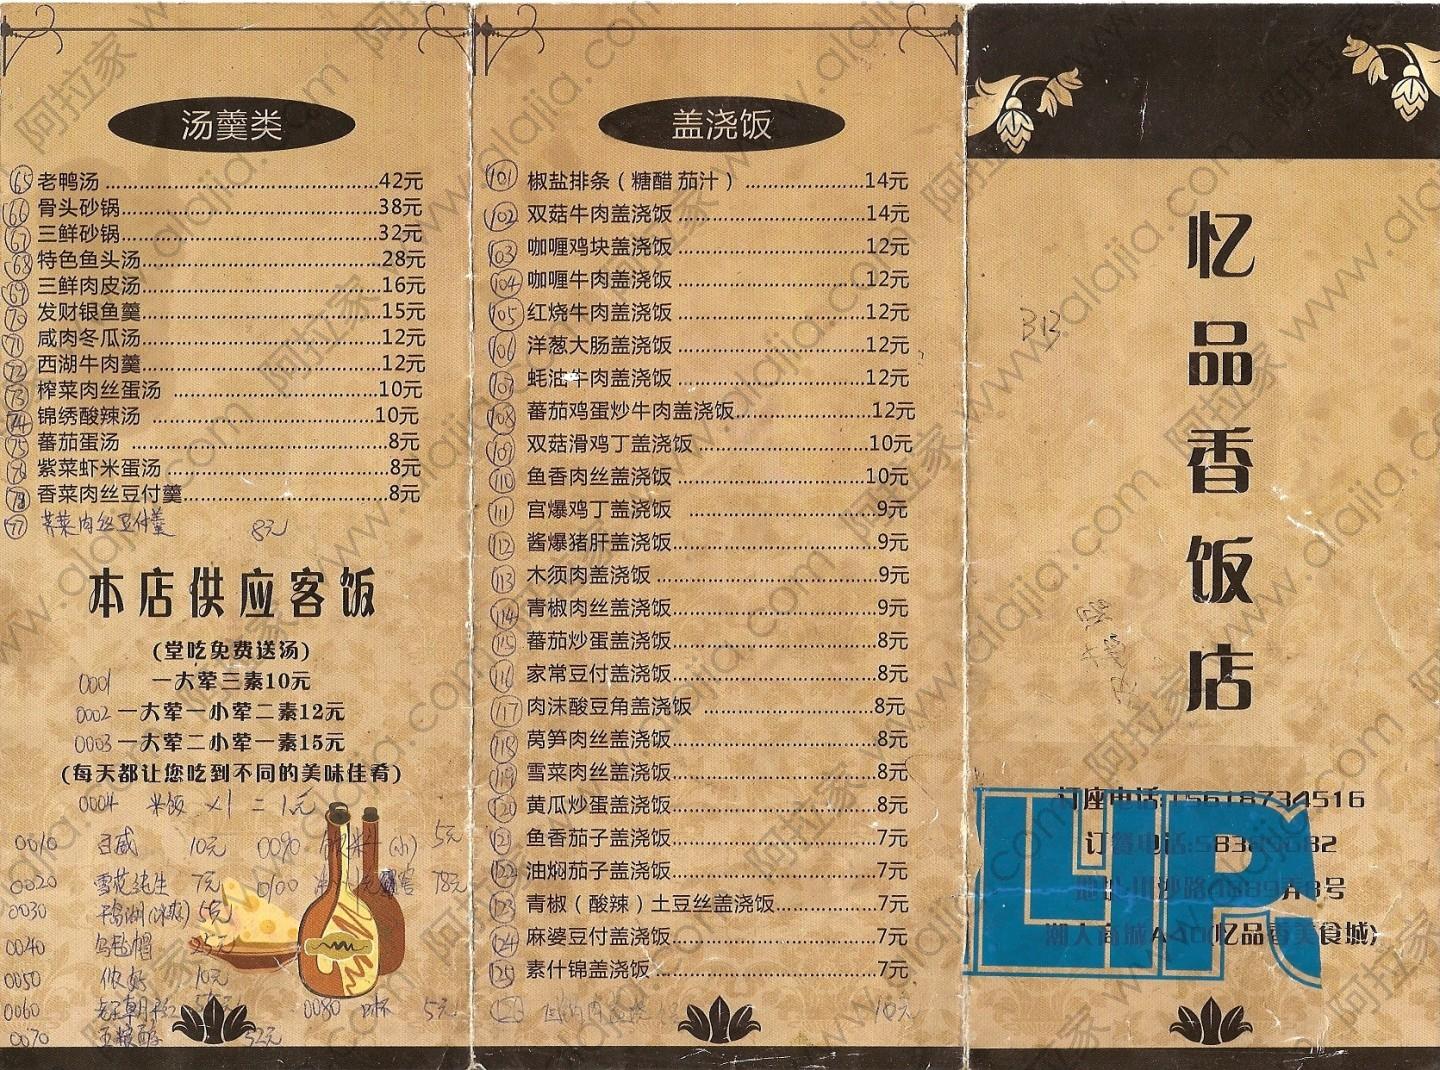 汤羹类
65 老鸭汤 42元
66 骨头砂锅 38元
67 三鲜砂锅 32元
68 特色鱼头汤 28元
69 三鲜肉皮汤 16元
70 发财银鱼羹 15元
71 咸肉冬瓜汤 12元
72 西湖牛肉羹 12元
73 榨菜肉丝蛋汤 10元
74 锦绣酸辣汤 10元
75 蕃茄蛋汤 8元
76 紫菜虾米蛋汤 8元
香菜肉丝豆付羹 8元
77 荠菜肉丝豆付羹 8元
本店供应客饭
(堂吃免费送汤)
0001 一大荤三素10元
0002 一大荤一小荤二素12元
0003 一大荤二小荤一素15元
(每天都让您吃到不同的美味佳肴)
0004 米饭 x1 = 1元
0010 百威 10元 0090 (小) 5元
0020 雪花纯生 7元 0100 18元
0030 5元
0040 乌毡帽 25元
0050 10元
0060 0080 5元
0070 五粮醇
盖浇饭
101 椒盐排条（糖醋 茄汁） 14元
102 双菇牛肉盖浇饭 14元
103 咖喱鸡块盖浇饭 12元
104 咖喱牛肉盖浇饭 12元
105 红烧牛肉盖浇饭 12元
106 洋葱大肠盖浇饭 12元
107 蚝油牛肉盖浇饭 12元
108 蕃茄鸡蛋炒牛肉盖浇饭 12元
109 双菇滑鸡丁盖浇饭 10元
110 鱼香肉丝盖浇饭 10元
111 宫爆鸡丁盖浇饭 9元
112 酱爆猪肝盖浇饭 9元
113 木须肉盖浇饭 9元
114 青椒肉丝盖浇饭 9元
115 蕃茄炒蛋盖浇饭 8元
116 家常豆付盖浇饭 8元
117 肉沫酸豆角盖浇饭 8元
118 莴笋肉丝盖浇饭 8元
119 雪菜肉丝盖浇饭 8元
120 黄瓜炒蛋盖浇饭 8元
121 鱼香茄子盖浇饭 7元
122 油焖茄子盖浇饭 7元
123 青椒（酸辣）土豆丝盖浇饭 7元
124 麻婆豆付盖浇饭 7元
125 素什锦盖浇饭 7元
10元
忆品香饭店
订座电话:15618734516
订餐电话:58389082
地址:川沙路4889弄8号
潮人商城A40(忆品香美食城)
LIP
阿拉家 www.alajia.com